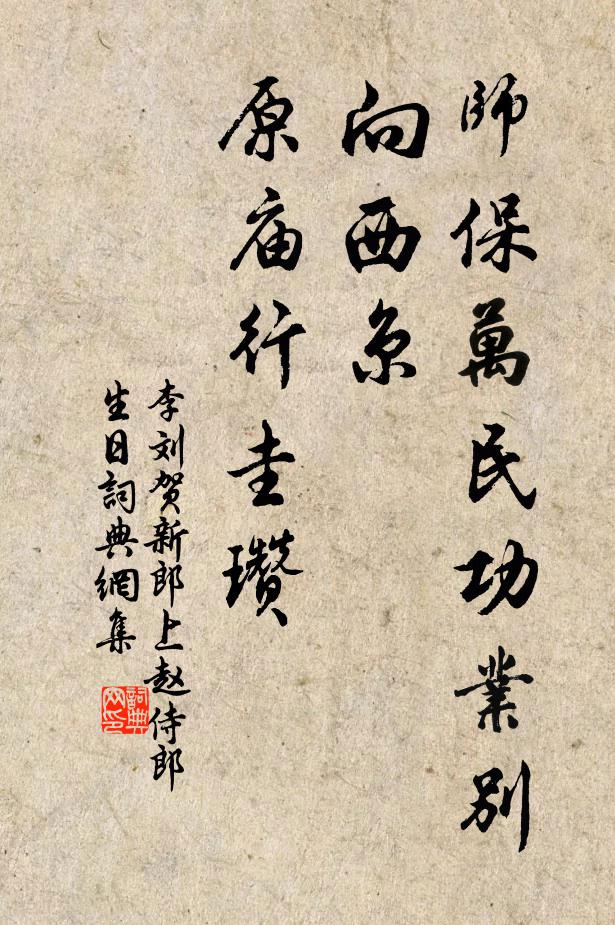 師保萬民功業別
向西京
原庙行圭瓚
李刘贺新郎上赵侍郎
生日詞典網集
詞典
网印